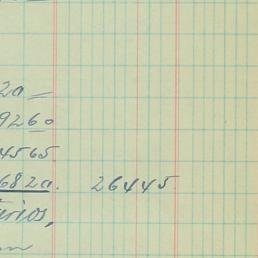 20 —
9260
4565
6820. 26445
arios,